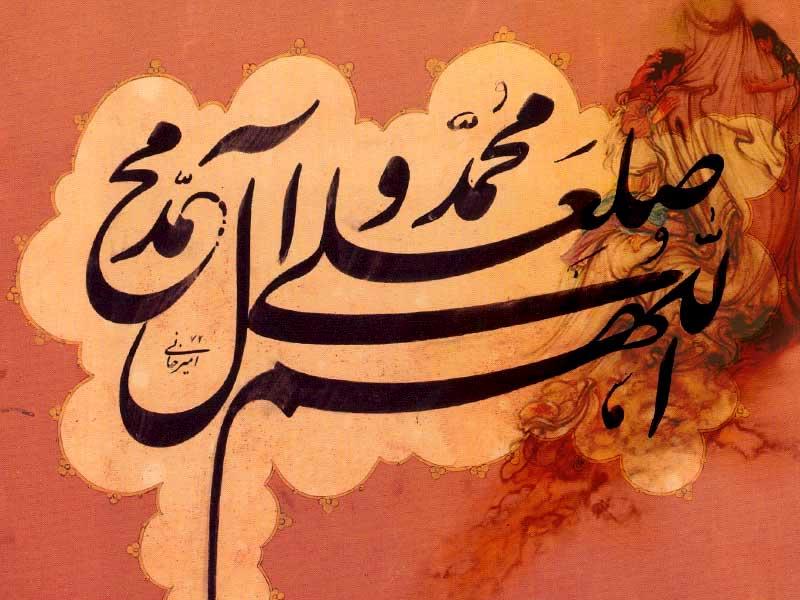 اللّهُمَّ
صلِّ عَلی مُحمّدٍ و آل محمّد
امیرخانی ۷۲